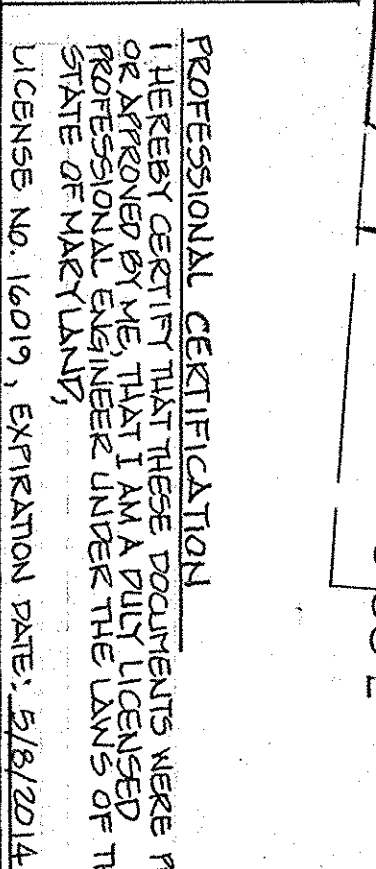 PROFESSIONAL CERTIFICATION
I HEREBY CERTIFY THAT THESE DOCUMENTS WERE
OR APPROVED BY ME, THAT I AM A DULY LICENSED
PROFESSIONAL ENGINEER UNDER THE LAWS OF
STATE OF MARYLAND,
LICENSE NO. 16019, EXPIRATION DATE: 5/8/2014